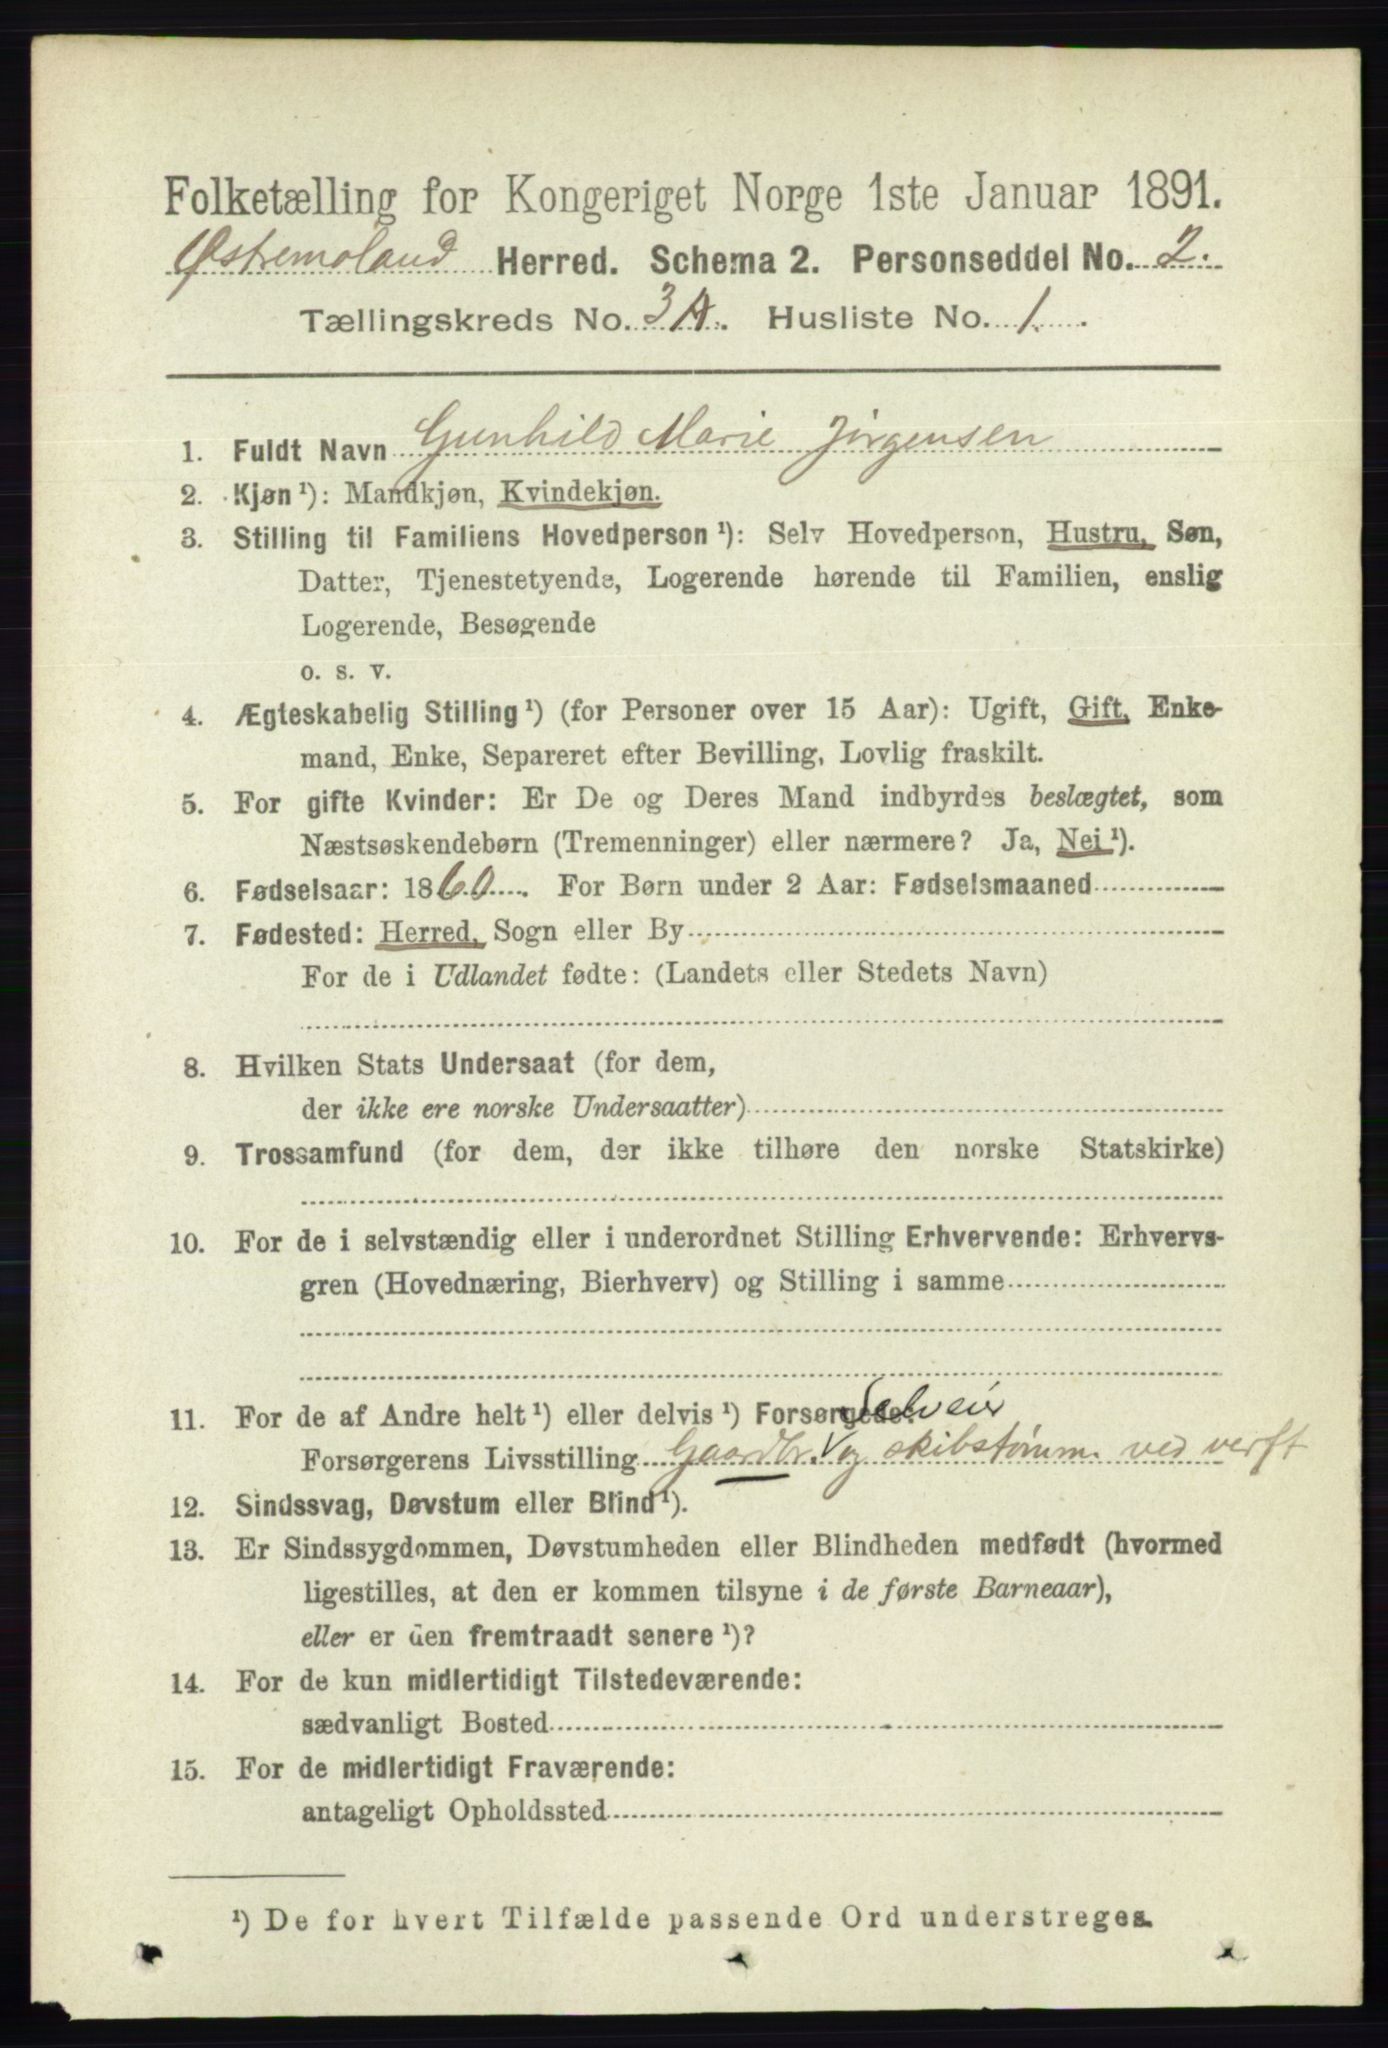 Folketælling for Kongeriget Norge 1ste Januar 1891.
Østremoland Herred. Schema 2. Personseddel No. 2.
Tællingskreds No. 3A. Husliste No. 1.
1. Fuldt Navn Gunhild Marie Jørgensen
2. Kjøn¹): Mandkjøn, Kvindekjøn.
3. Stilling til Familiens Hovedperson¹): Selv Hovedperson, Hustru, Søn,
Datter, Tjenestetyende, Logerende hørende til Familien, enslig
Logerende, Besøgende
o. s. v.
4. Ægteskabelig Stilling¹) (for Personer over 15 Aar): Ugift, Gift, Enke-
mand, Enke, Separeret efter Bevilling, Lovlig fraskilt.
5. For gifte Kvinder: Er De og Deres Mand indbyrdes beslægtet, som
Næstsøskendebørn (Tremenninger) eller nærmere? Ja, Nei¹).
6. Fødselsaar: 1860. For Børn under 2 Aar: Fødselsmaaned
7. Fødested: Herred, Sogn eller By
For de i Udlandet fødte: (Landets eller Stedets Navn)
8. Hvilken Stats Undersaat (for dem,
der ikke ere norske Undersaatter)
9. Trossamfund (for dem, der ikke tilhøre den norske Statskirke)
10. For de i selvstændig eller i underordnet Stilling Erhvervende: Erhvervs-
gren (Hovednæring, Bierhverv) og Stilling i samme
Selveier
11. For de af Andre helt¹) eller delvis¹) Forsørgede:
Forsørgerens Livsstilling Gaardbr. V og skibstømm. ved verft
12. Sindssvag, Døvstum eller Blind¹).
13. Er Sindssygdommen, Døvstumheden eller Blindheden medfødt (hvormed
ligestilles, at den er kommen tilsyne i de første Barneaar),
eller er den fremtraadt senere¹)?
14. For de kun midlertidigt Tilstedeværende:
sædvanligt Bosted
15. For de midlertidigt Fraværende:
antageligt Opholdssted
¹) De for hvert Tilfælde passende Ord understreges.